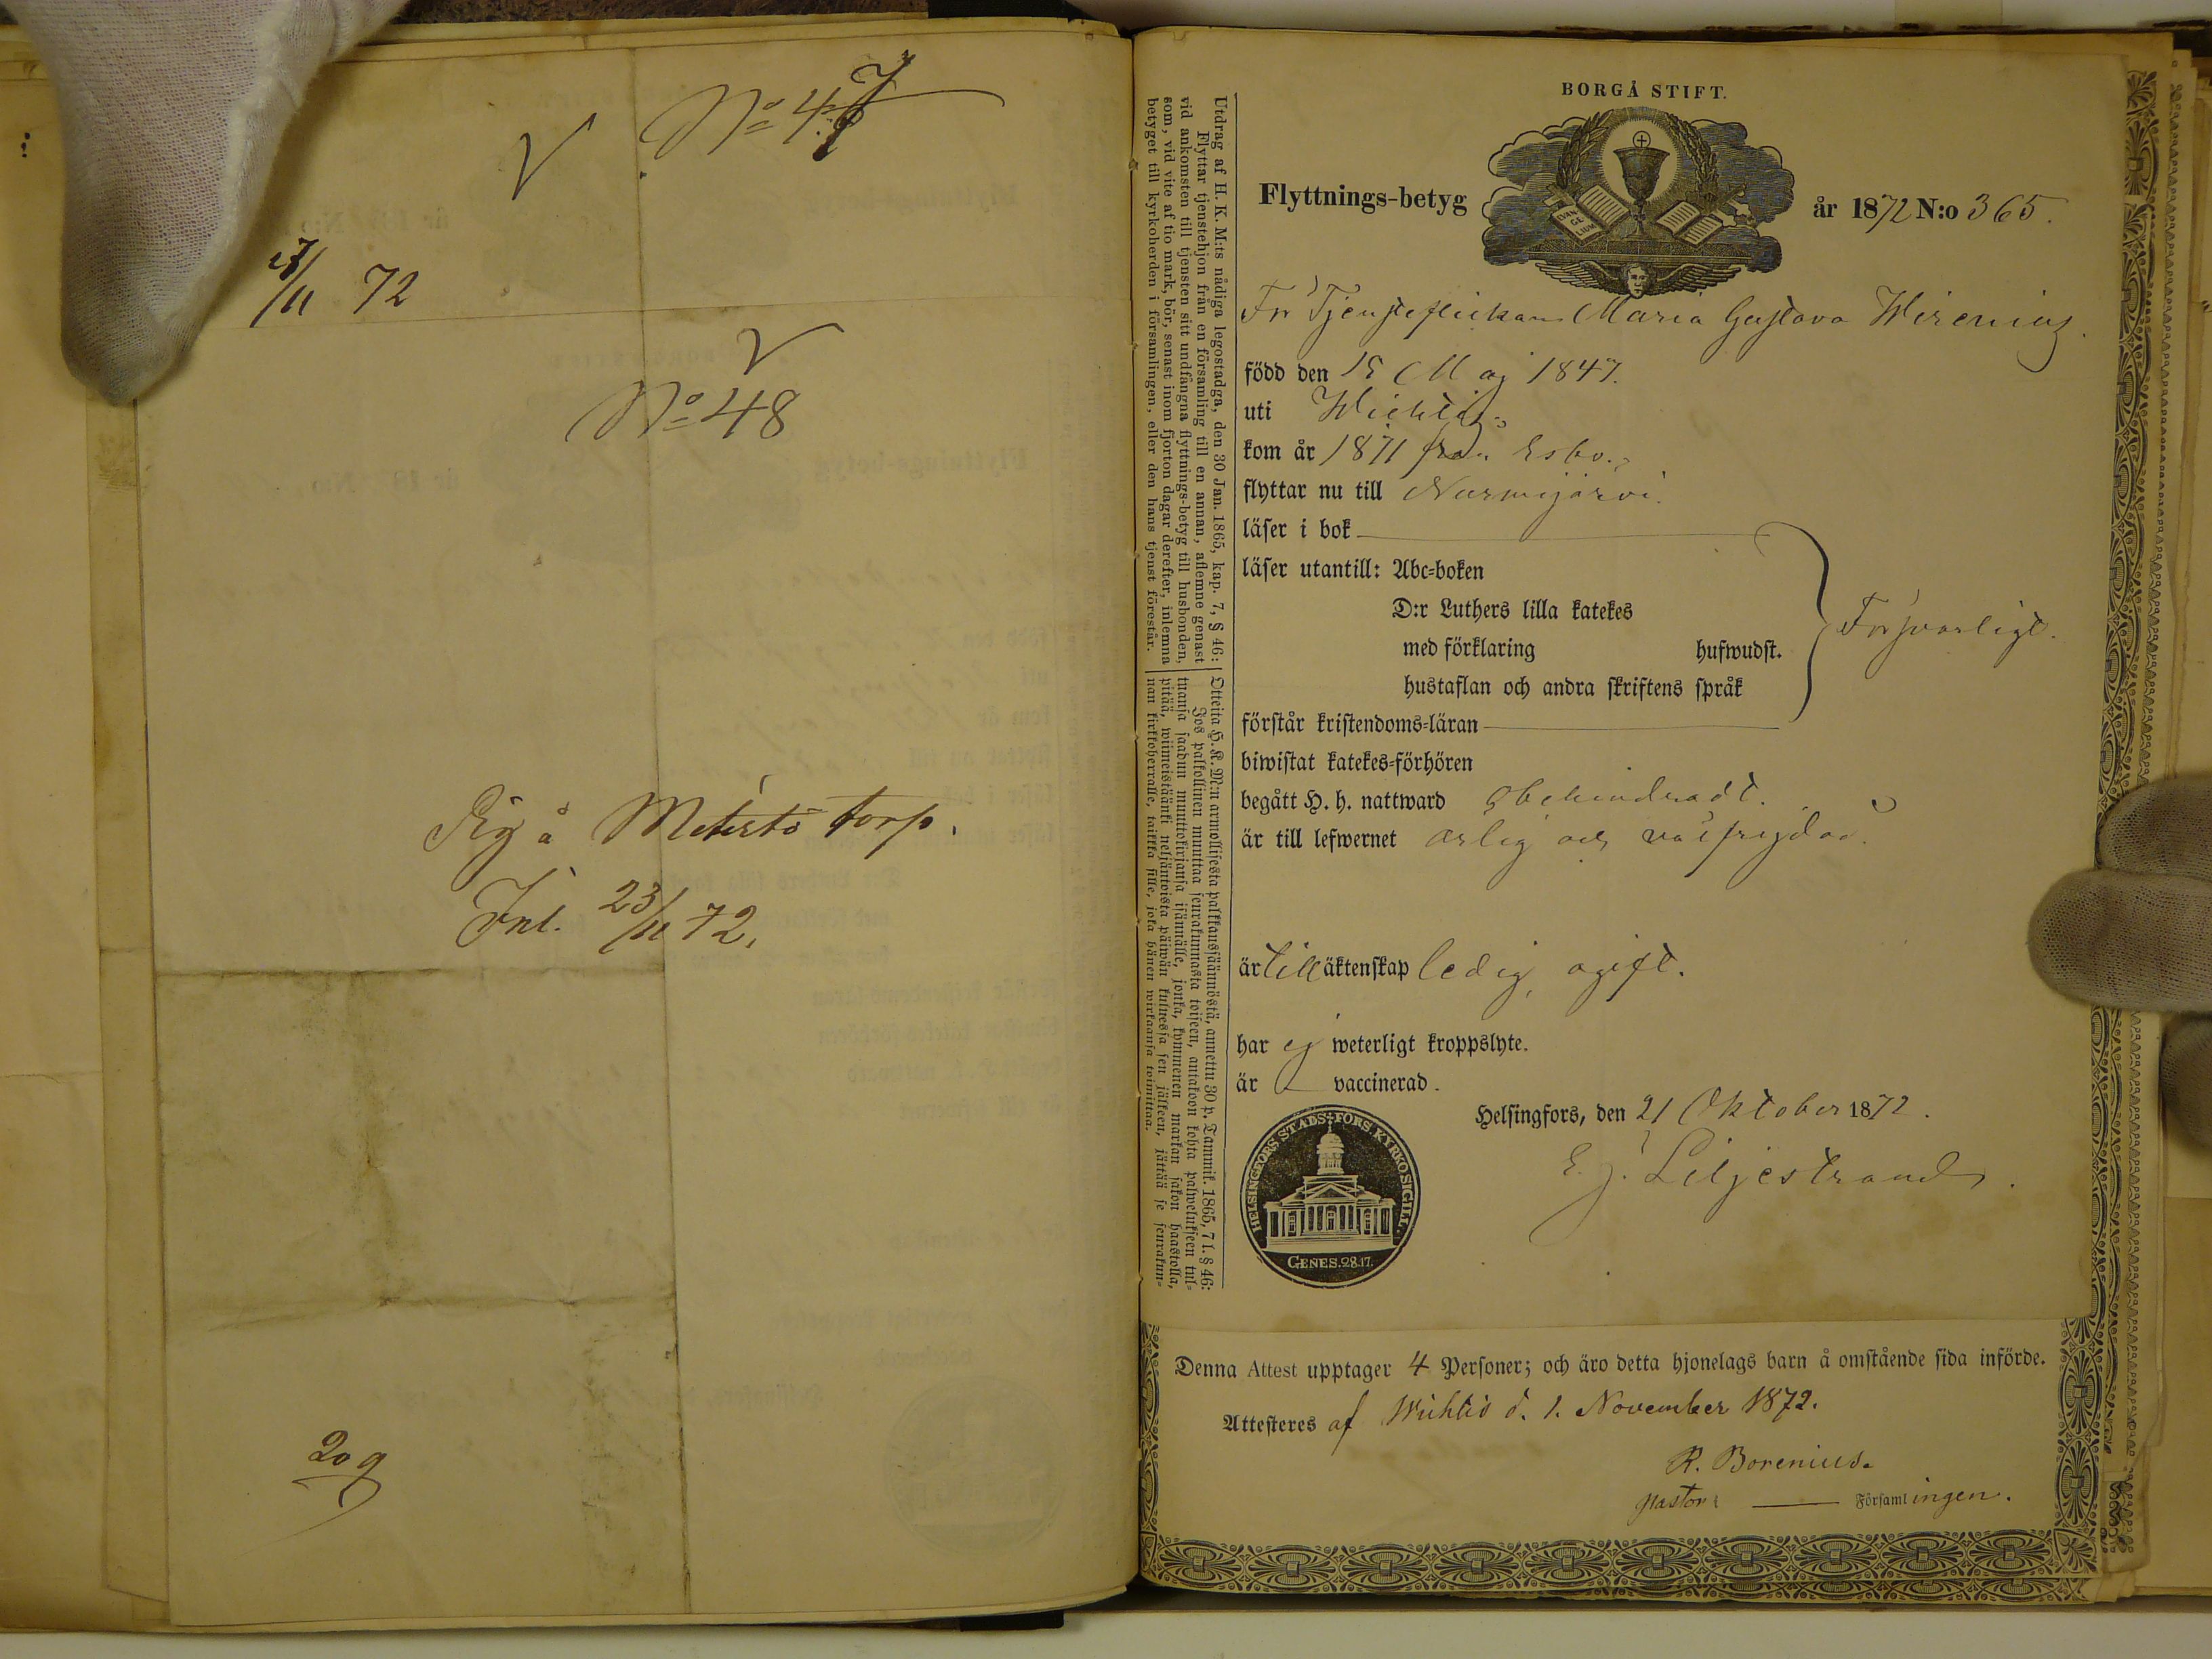 V Nº 47
23/11 72
V
Nº 48
Pig å Metistö torp.
Inl. 23/11 72.
209
Utdrag af H. K. M:ts nådiga legostadga, den 30 Jan. 1865, kap. 7, § 46:
Flyttar tjenstehjon från en församling till en annan, aflemne genast
vid ankomsten till tjensten sitt undfångna flyttnings-betyg till husbonden,
som, vid vite af tio mark, bör, senast inom fjorton dagar derefter, inlemna
betyget till kyrkoherden i församlingen, eller den hans tjenst förestår.
Otteita H. K. M:n armollisesta palkkaussäännöstä, annettu 30 p. Tammik. 1865, 7 l. § 46:
Jos palkollinen muuttaa seurakunnasta toiseen, antakoon kohta palwelukseen tul-
tuansa saadun muuttokirjansa isännälle, jonka, kymmenen markan sakon haastolla,
pitää, wiimeistäänki neljäntoista päiwän kuluessa sen jälkeen, jättää se seurakun-
nan kirkkoherralle, taikka sille, joka hänen wirkaansa toimittaa.
BORGÅ STIFT.
EVANGELIUM
Flyttnings-betyg år 1872 N:o 365.
För Tjensteflickan Maria Gustava Wirenius.
född den 15 Maj 1847.
uti Wichtis
kom år 1871 från Esbo.
flyttar nu till Nurmijärvi.
läser i bok
läser utantill: Abc-boken
D:r Luthers lilla katekes
med förklaring hufwudst.
hustaflan och andra skriftens språk
Försvarligt.
förstår kristendoms-läran
biwistat katekes-förhören
begått H. h. nattward obehindradt.
är till lefwernet ärlig och välfrejdad.
är till äktenskap ledig, ogift.
har ej weterligt kroppslyte.
är vaccinerad.
Helsingfors, den 21 Oktober 1872.
E. J. Liljestrand.
HELSINGFORS STADS FÖRS. KYRKO SIGILL.
GENES. 28.17.
Denna Attest upptager 4 Personer; och äro detta hjonelags barn å omstående sida införde.
Attesteres af Wichtis d. 1. November 1872.
R. Borenius.
Pastor i — Församlingen.